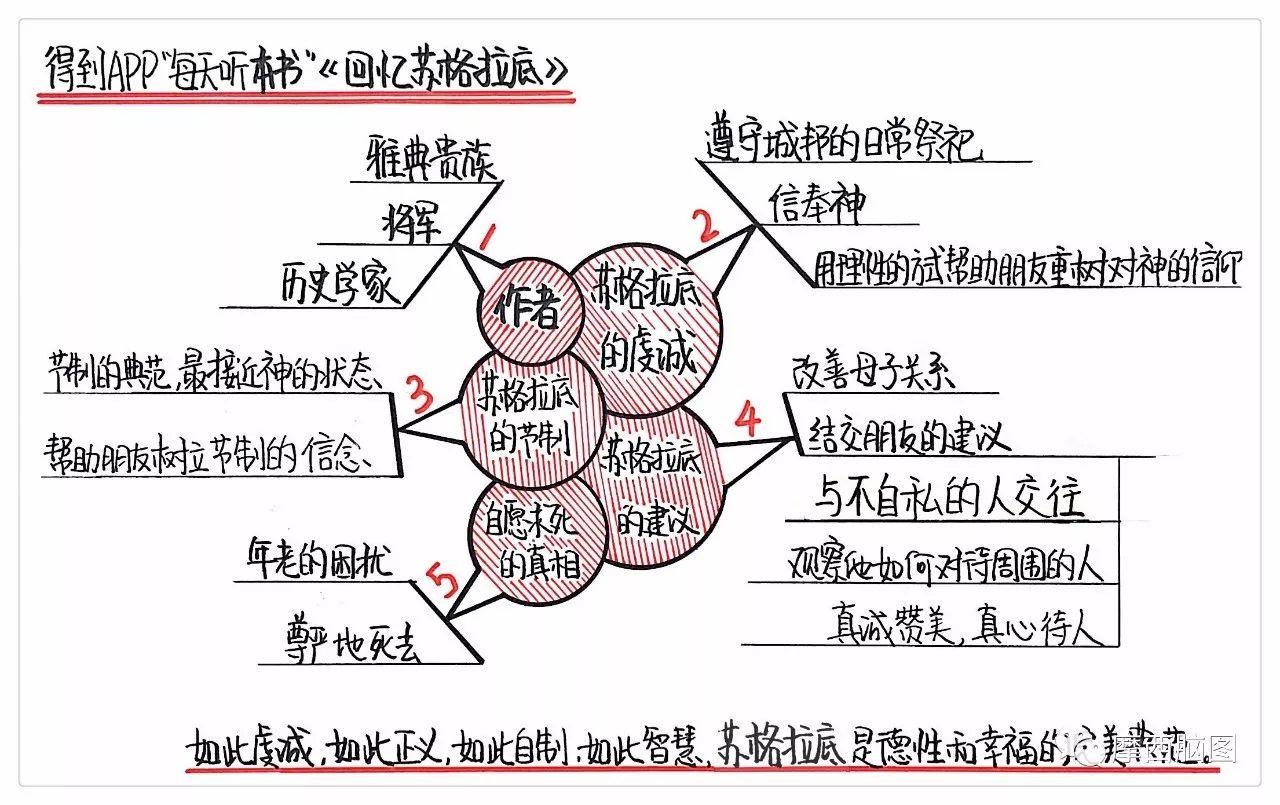 得到APP"每天听本书"《回忆苏格拉底》
1
作者
雅典贵族
将军
历史学家
2
苏格拉底
的虔诚
遵守城邦的日常祭祀
信奉神
用理性的方式帮助朋友重树对神的信仰
3
苏格拉底
的节制
节制的典范,最接近神的状态、
帮助朋友树立节制的信念、
4
苏格拉底
的建议
改善母子关系
结交朋友的建议
与不自私的人交往
观察他如何对待周围的人
真诚赞美,真心待人
5
自愿求死
的真相
年老的困扰
尊严地死去
如此虔诚,如此正义,如此自制,如此智慧,苏格拉底是德性而幸福的完美典范。
摩西脑图